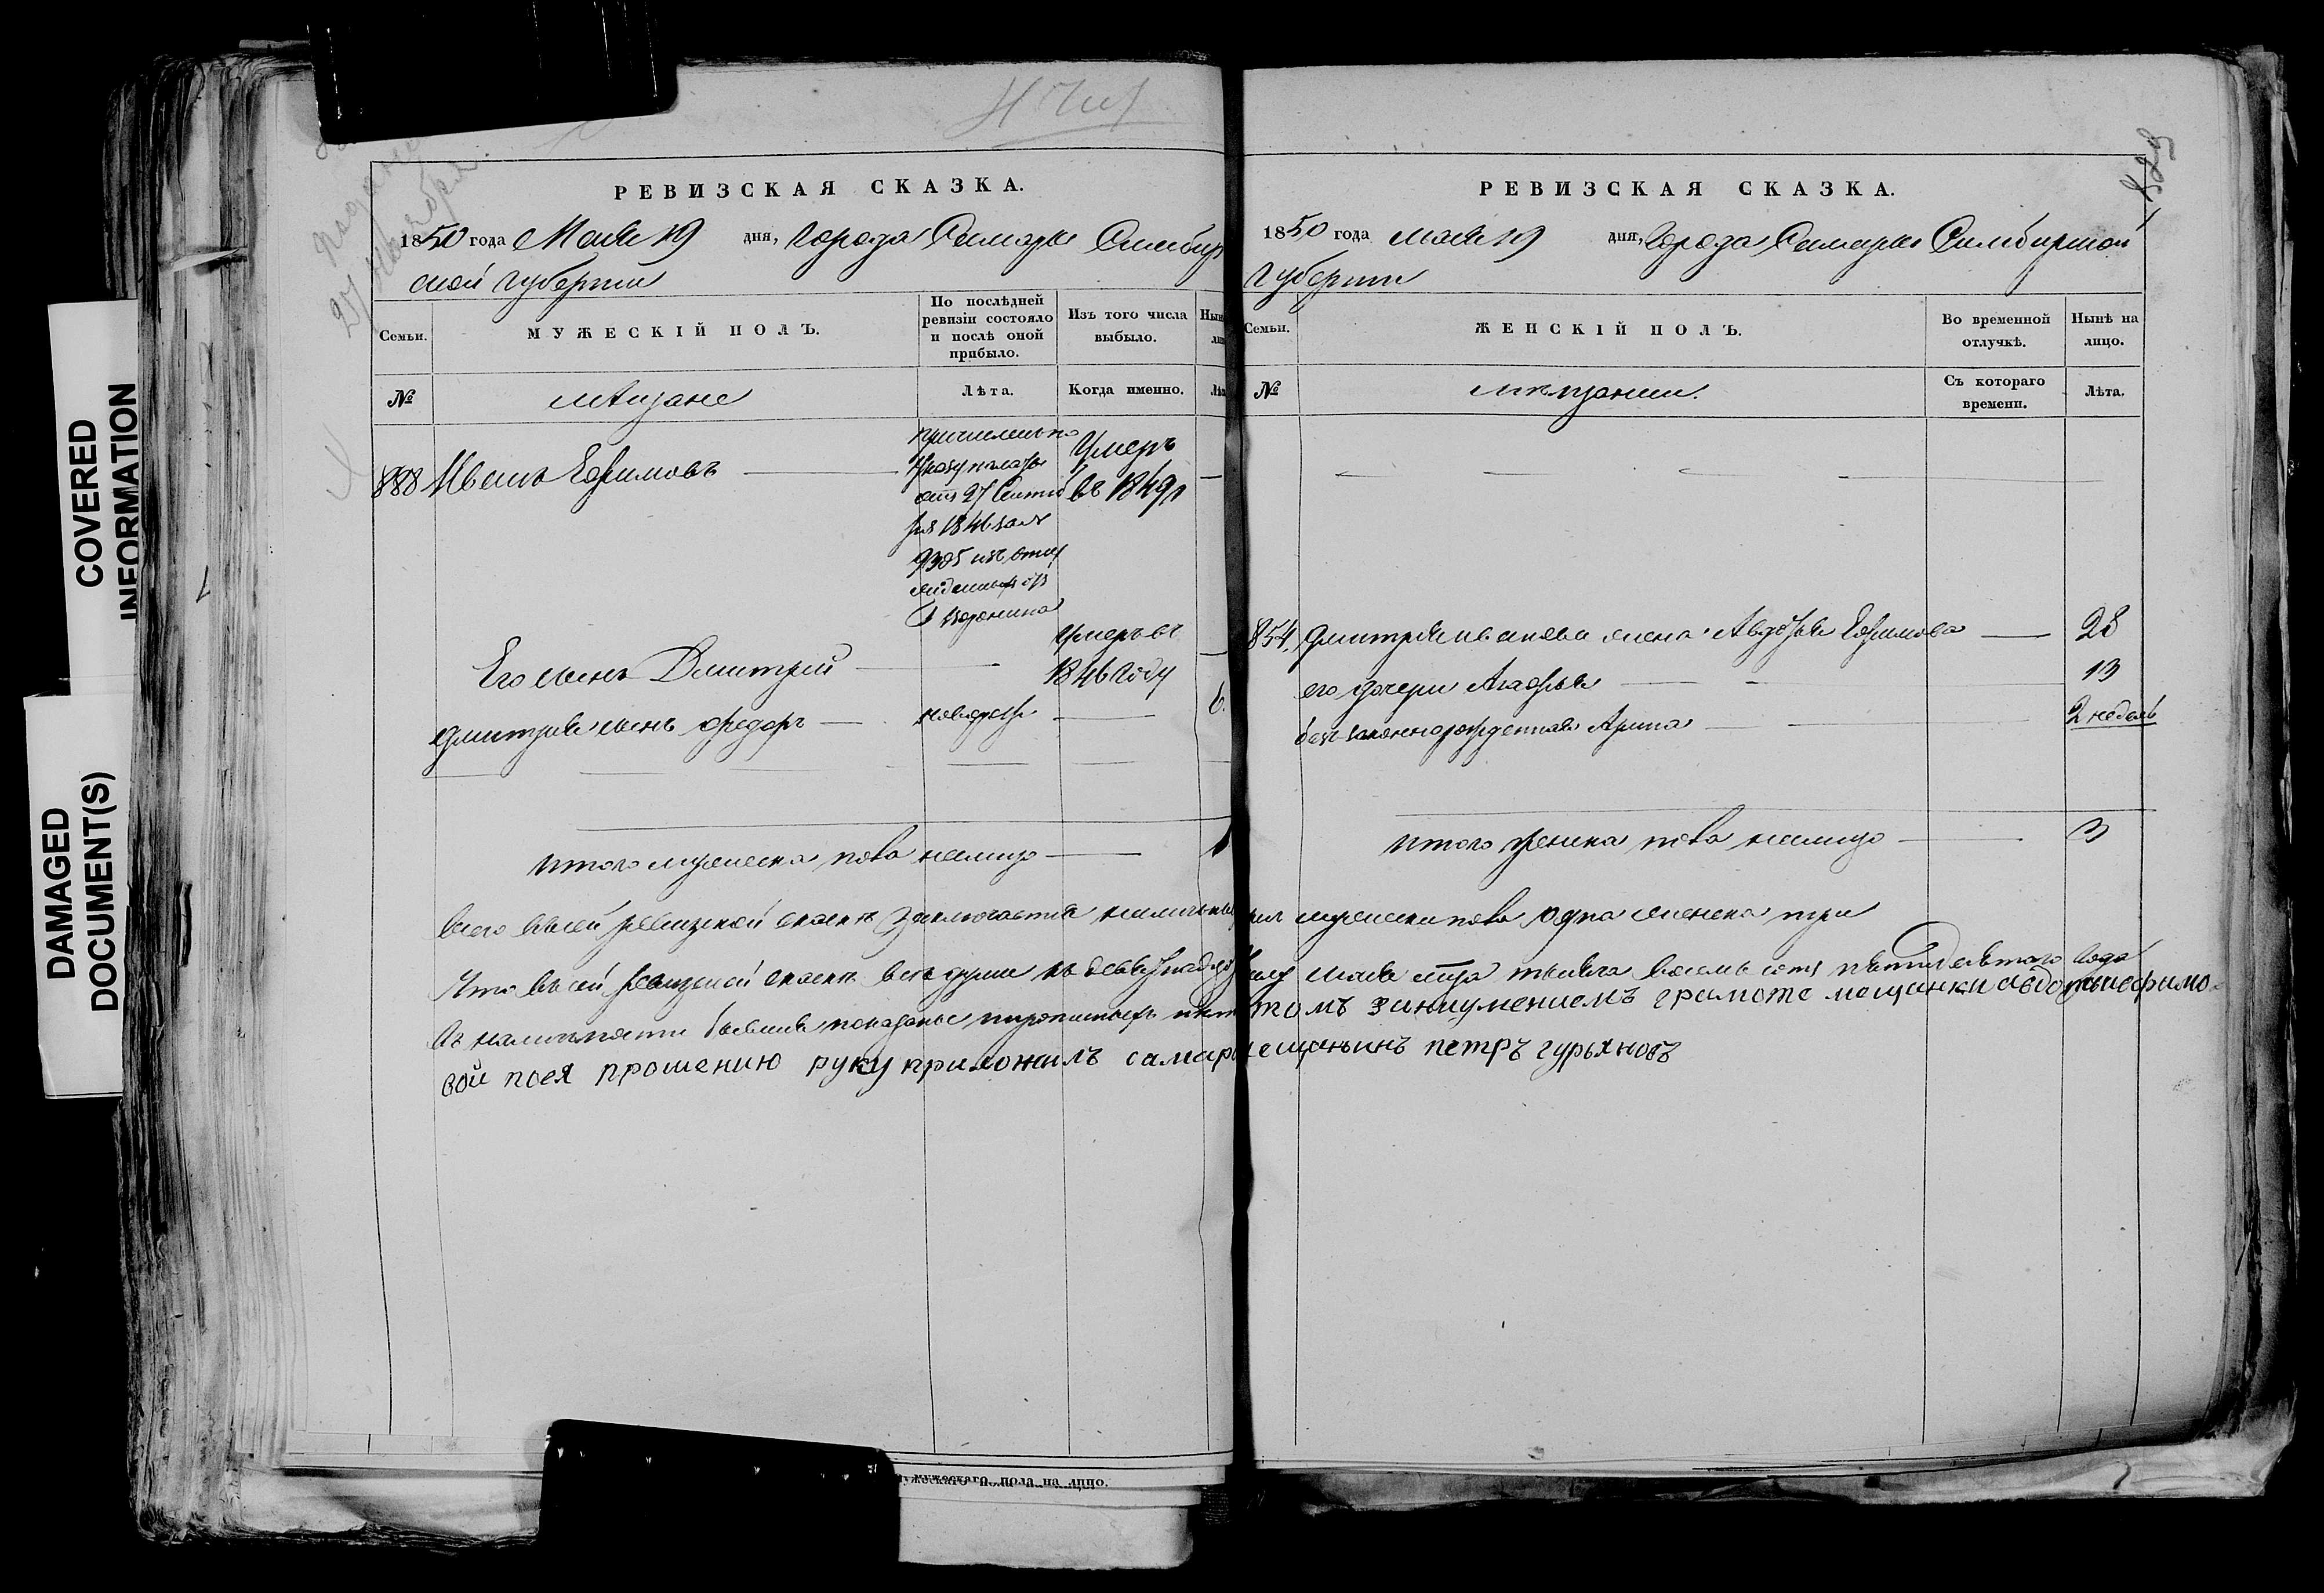 COVERED
INFORMATION
DAMAGED
DOCUMENT(S)
РЕВИЗСКАЯ СКАЗКА.
1850 года Мая 19 дня, города Самары Симбир
ской губернии
Семьи.
МУЖЕСКІЙ ПОЛЪ.
По послѣдней ревизіи состояло и послѣ оной прибыло.
Изъ того числа выбыло.
№
мѣщане
Лѣта.
Когда именно.
888 Иванъ Ефимовъ
причисленъ по
указу палаты
отъ 27 Сентяб
ря 1846 за №
9305 изъ
Умеръ
въ 1849г
Его сынъ Дмитрий
умеръ въ
1846 году
дмитрия сынъ федоръ
новорож
6.
итого мужеска пола налицо 1
РЕВИЗСКАЯ СКАЗКА.
1850 года мая 19 дня, города Самары Симбирской
губернии
Семьи.
ЖЕНСКІЙ ПОЛЪ.
Во временной отлучкѣ.
Нынѣ на лицо.
№
мѣщанки.
Съ котораго времени.
Лѣта.
854. дмитрия иванова жена Авдотья Ефимова 28
его дочери Агафья 13
беззаконнорожденная Арина 2 недель
итого женска пола налицо 3
всего въ сей ревизской сказкѣ заключается мужеска пола одна женска три
Что въ сей ревизской сказкѣ всѣ души къ мая мца тысяча восемь сотъ пятидесятаго года
въ наличности бывшия показаны и прописныхъ нѣт томъ занеумениемъ грамоте мещанки авдотьи ефимо
вой поея прошению руку приложилъ самар мещанинъ петръ гурьяновъ
мужескаго пола на лицо.